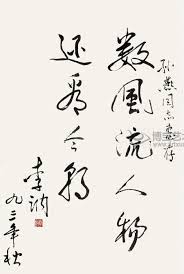 孙燕同志嘱存
数风流人物
还看今朝
李讷
九三年秋
博宝